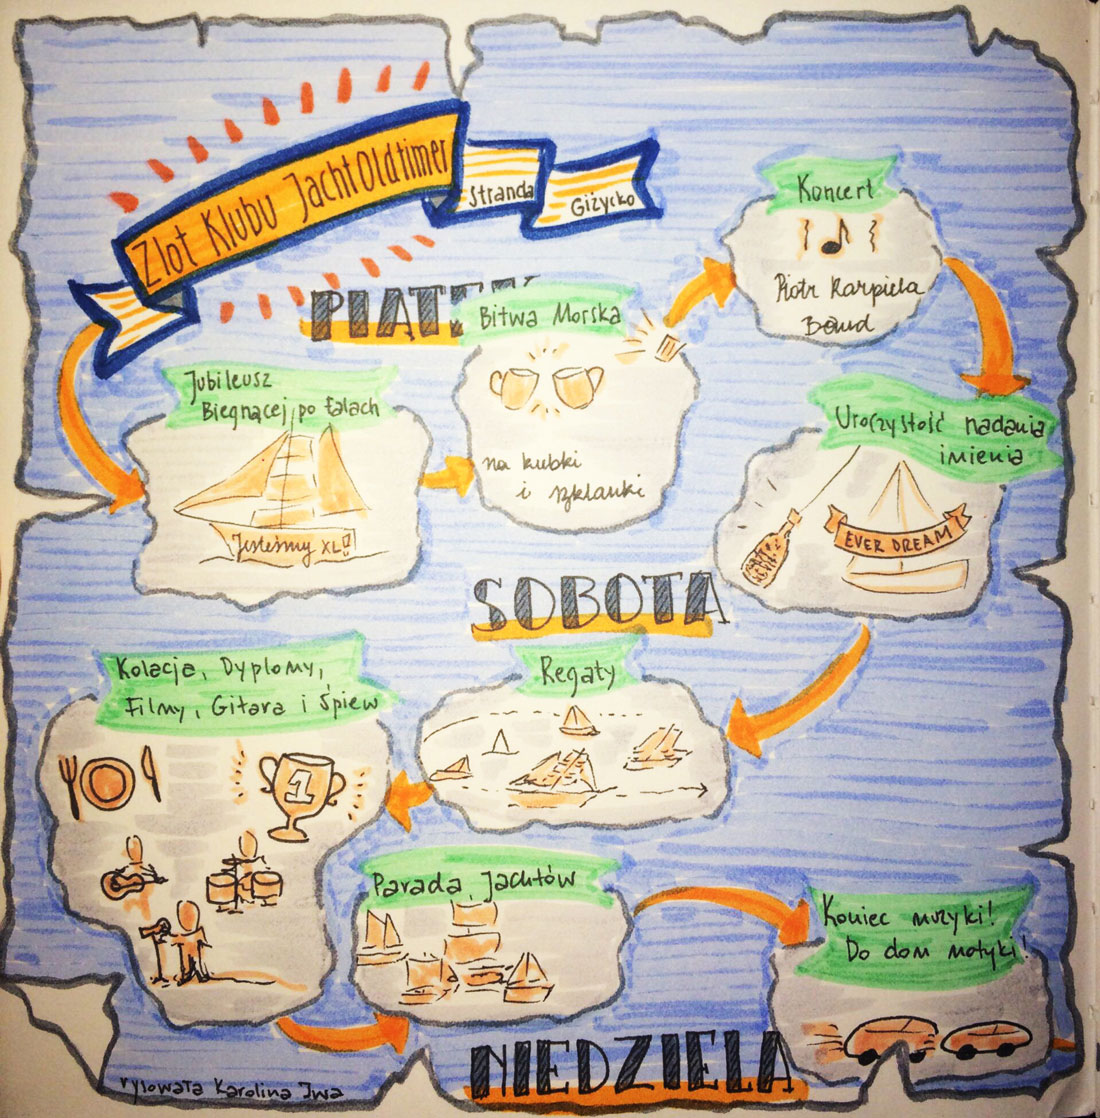 Zlot Klubu Jacht Oldtimer
Stranda
Giżycko
PIĄTEK
Jubileusz
Biegnącej po falach
Jesteśmy XL!!
Bitwa Morska
na kubki
i szklanki
Koncert
Piotr Karpiela
Band
Uroczystość nadania
imienia
EVER DREAM
SOBOTA
Regaty
Kolacja, Dyplomy,
Filmy, Gitara i Śpiew
1
Parada Jachtów
NIEDZIELA
Koniec muzyki!
Do dom motyki!
rysowała Karolina Iwa